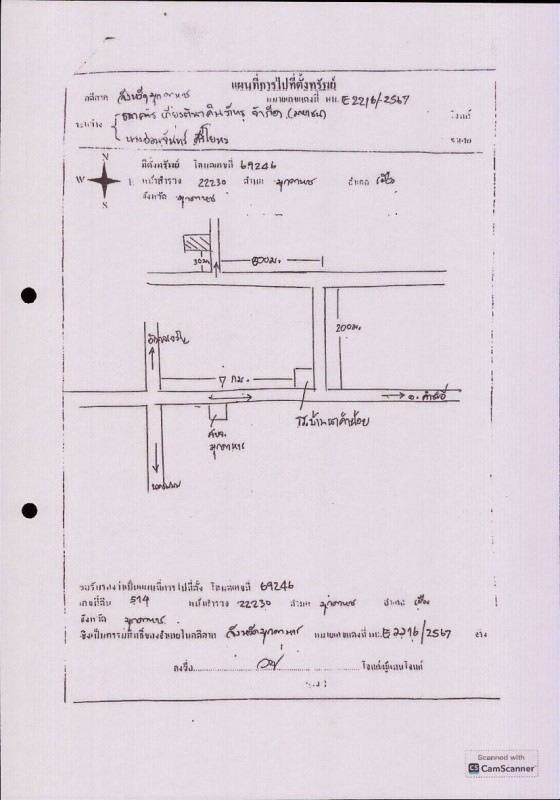 แผนที่การไปที่ตั้งทรัพย์
ศาล จังหวัดมุกดาหาร หมายเลขแดงที่ ผบ.E2216/2567
ระหว่าง ธนาคาร เกียรตินาคินภัทร จำกัด (มหาชน) โจทก์
จำเลย
N
W
S
ที่ตั้งทรัพย์ โฉนดเลขที่ 69246
หน้าสำรวจ 22230 ตำบล มุกดาหาร อำเภอ เมือง
จังหวัด มุกดาหาร
30ม.
800ม.
200ม.
7 กม.
อ. คำชะอี
รร.บ้านนาคำน้อย
มุกดาหาร
นครพนม
ขอรับรองว่าเป็นแผนที่การไปที่ตั้ง โฉนดเลขที่ 69246
เลขที่ดิน 514 หน้าสำรวจ 22230 ตำบล มุกดาหาร อำเภอ เมือง
จังหวัด มุกดาหาร
ซึ่งเป็นกรรมสิทธิ์ของจำเลยในคดีศาล จังหวัดมุกดาหาร หมายเลขแดงที่ ผบ.E2216/2567 จริง
ลงชื่อ โจทก์/ผู้แทนโจทก์
Scanned with
CS CamScanner